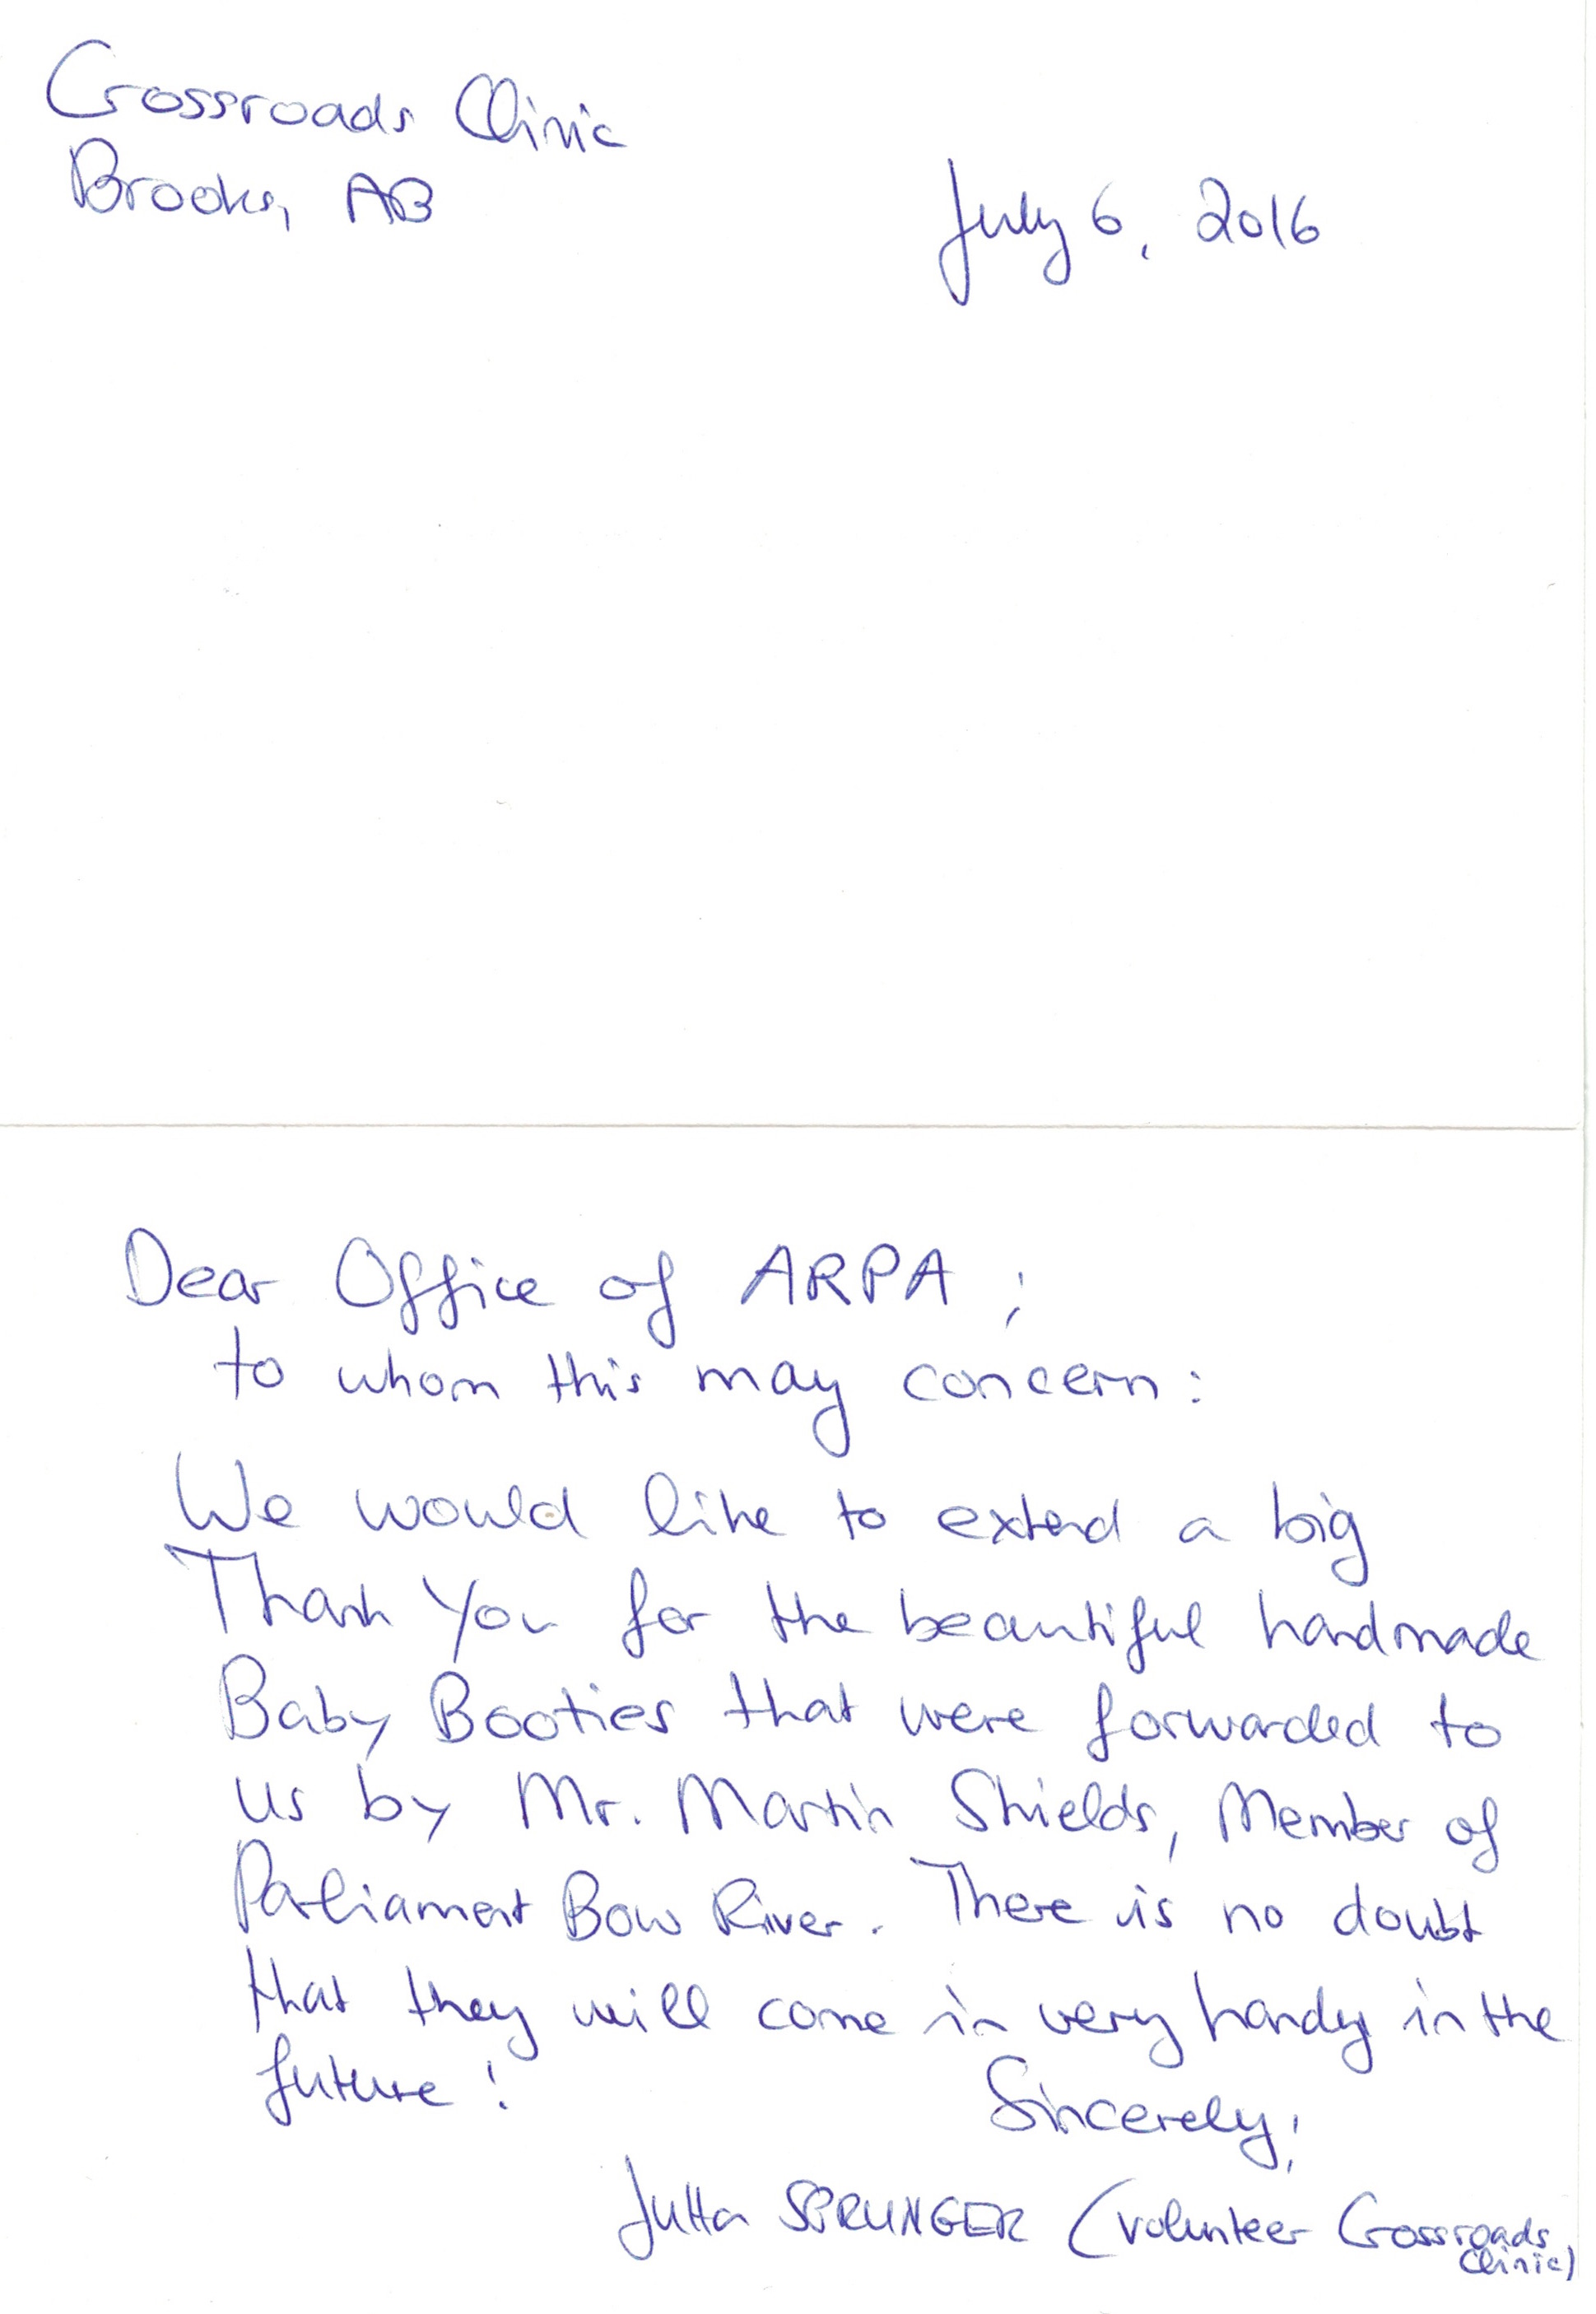 Crossroads Clinic
Brooks, AB
July 6, 2016
Dear Office of ARPA;
to whom this may concern:
We would like to extend a big
Thank You for the beautiful handmade
Baby Booties that were forwarded to
us by Mr. Martin Shields, Member of
Parliament Bow River. There is no doubt
that they will come in very handy in the
future!
Sincerely,
Jutta SPRUNGER (Volunteer Crossroads
Clinic)